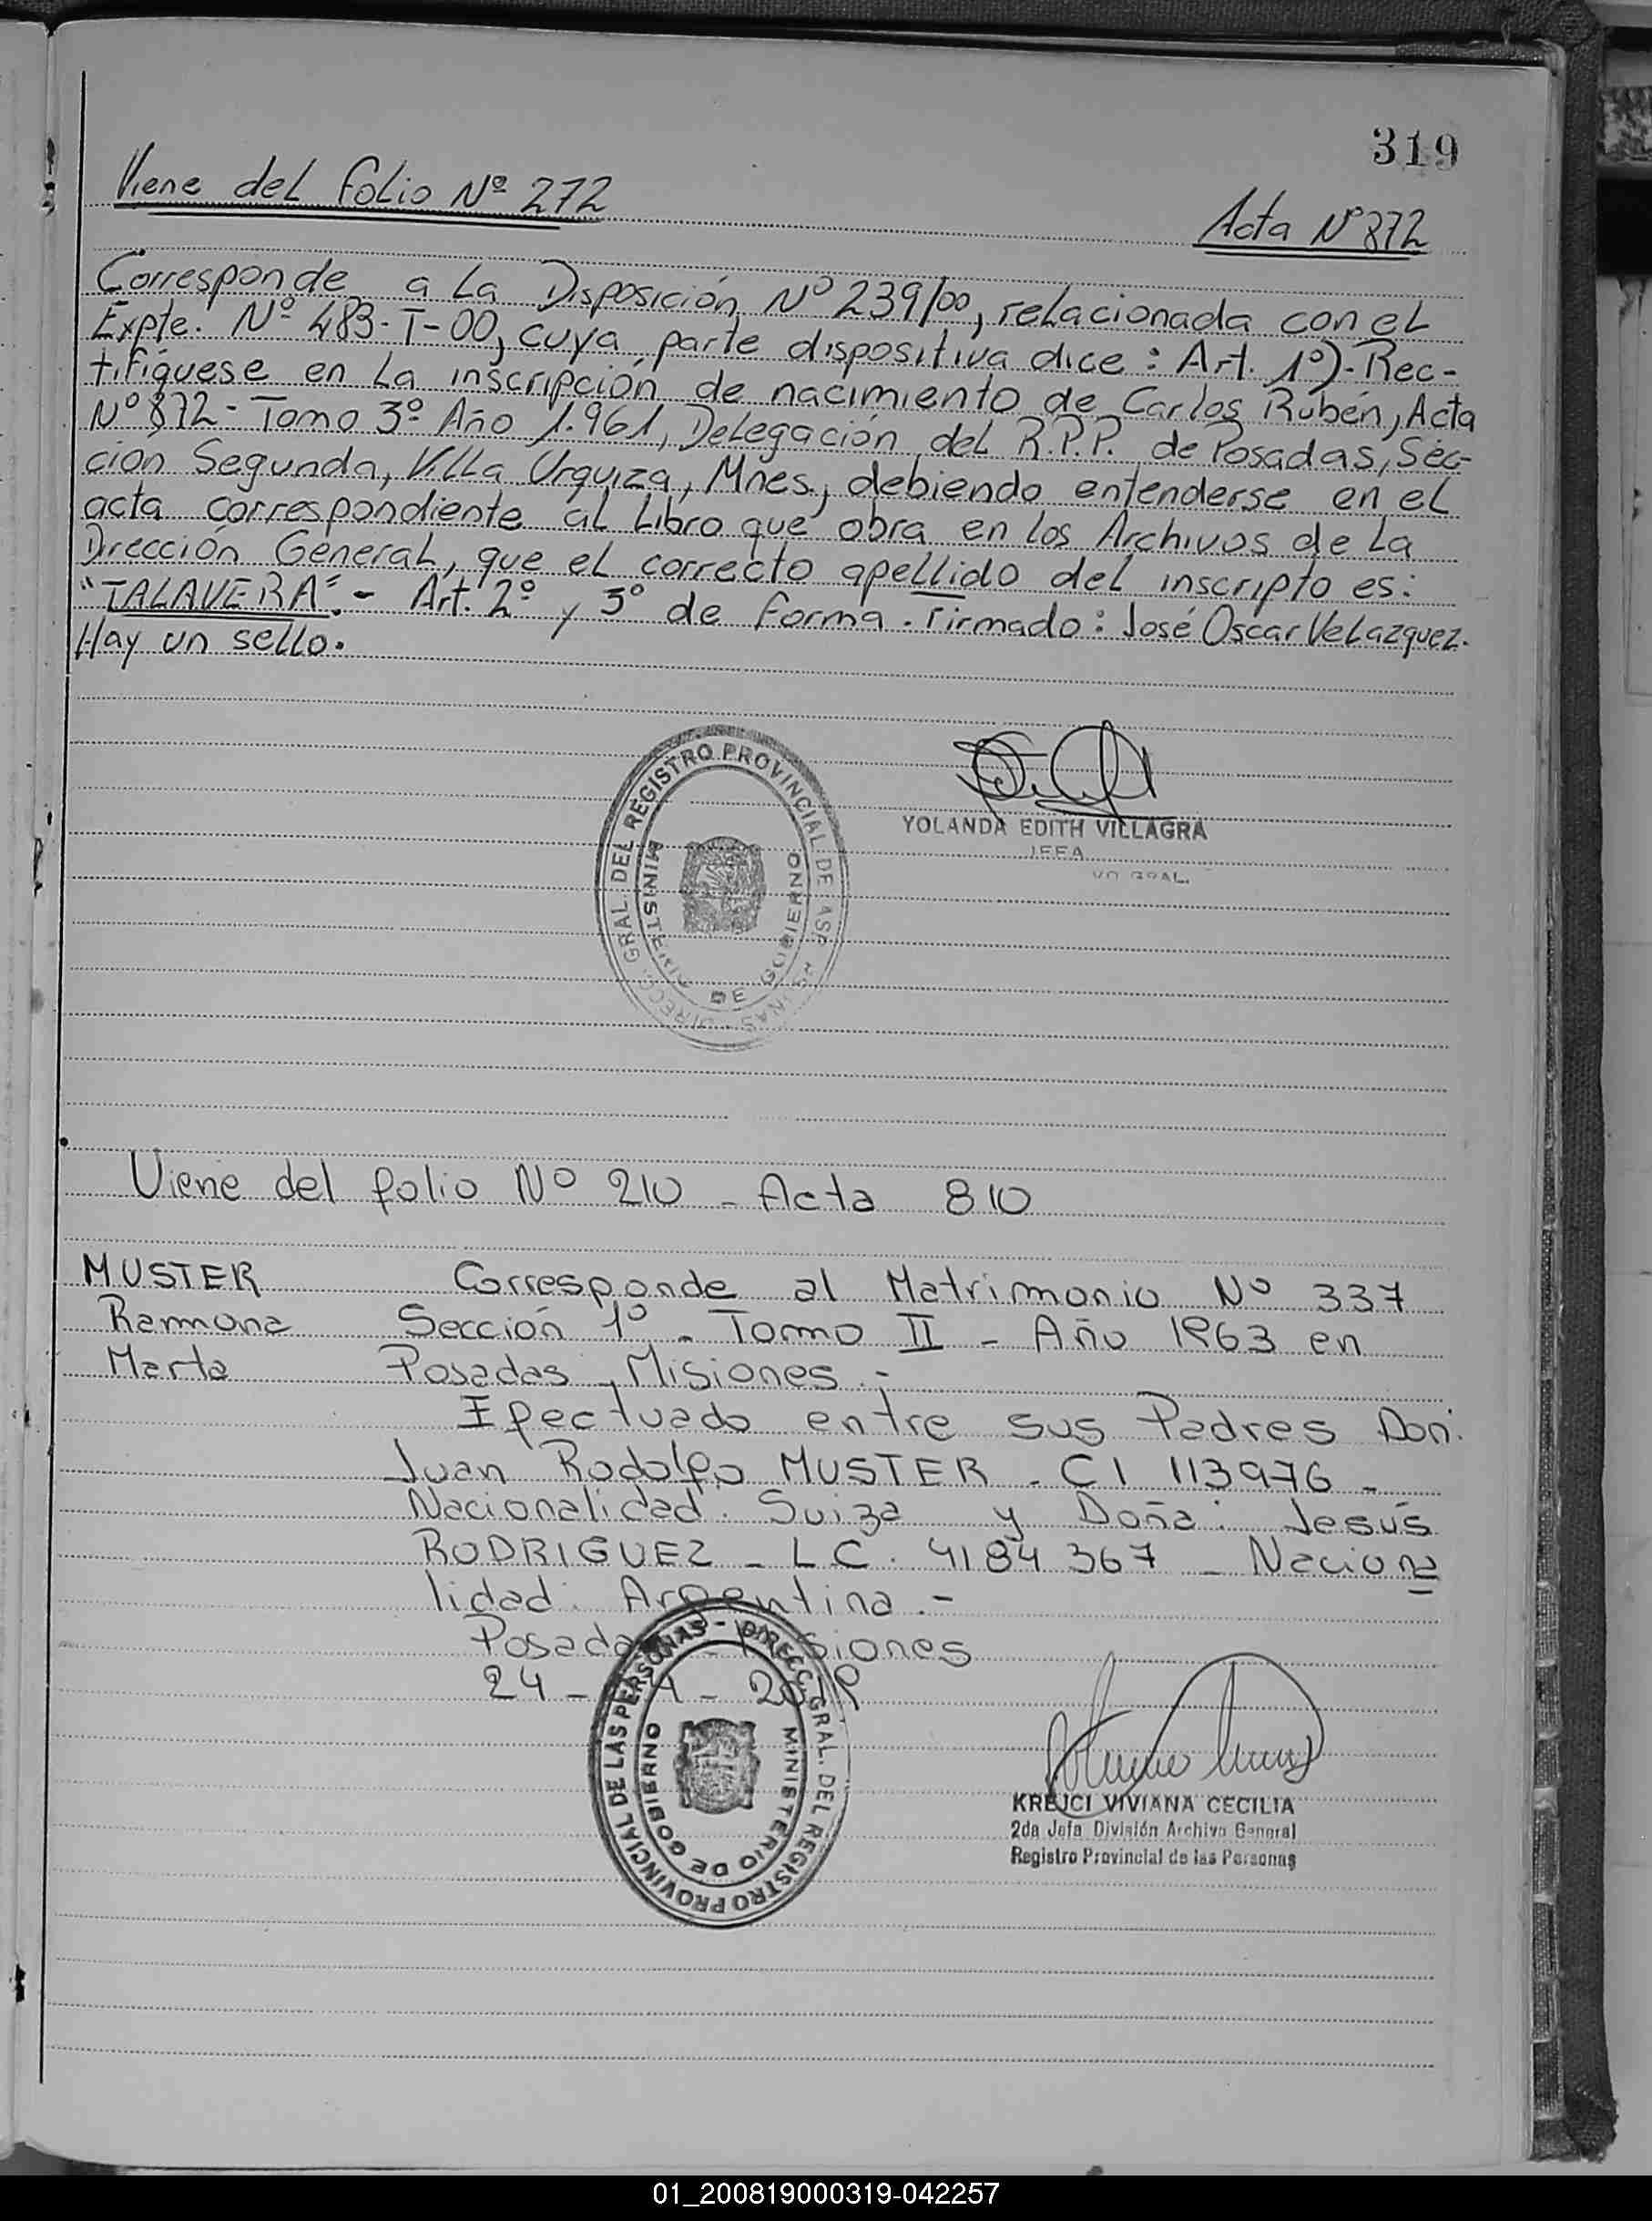 319
Viene del folio Nº 272
Acta Nº 872
Corresponde a la Disposición Nº 239/00, relacionada con el
Expte. Nº 483-T-00, cuya parte dispositiva dice: Art. 1º).- Rec-
tifiquese en la inscripción de nacimiento de Carlos Rubén, Acta
Nº 872 - Tomo 3º Año 1.961, Delegación del R.P.P. de Posadas, Sec-
ción Segunda, Villa Urquiza, Mnes., debiendo entenderse en el
acta correspondiente al Libro que obra en los Archivos de la
Dirección General, que el correcto apellido del inscripto es:
"TALAVERA".- Art. 2º y 3º de forma. Firmado: José Oscar Velazquez.
Hay un sello.
DIRECC. GRAL. DEL REGISTRO PROVINCIAL DE
MINISTERIO DE GOBIERNO
YOLANDA EDITH VILLAGRA
JEFA
GRAL.
Viene del folio Nº 210 - Acta 810
MUSTER Corresponde al Matrimonio Nº 337
Ramona Sección 1º - Tomo II - Año 1963 en
Marta Posadas, Misiones.-
Efectuado entre sus Padres Don:
Juan Rodolfo MUSTER - CI 113976 -
Nacionalidad: Suiza y Doña: Jesús
RODRIGUEZ - LC. 4184367 - Naciona
lidad: Argentina.-
Posadas - Misiones
24 -
DIRECC. GRAL. DEL REGISTRO PROVINCIAL DE LAS PERSONAS -
MINISTERIO DE GOBIERNO
KREJCI VIVIANA CECILIA
2da Jefa División Archivo General
Registro Provincial de las Personas
01_200819000319-042257